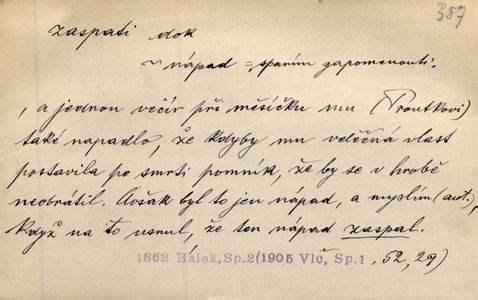 357
zaspati dok
~ nápad = spaním zapomenouti.
, a jednou večír při měsíčku mu (Proutkovi)
také napadlo, že kdyby mu vděčná vlast
postavila po smrti pomník, že by se v hrobě
neobrátil. Avšak byl to jen nápad, a myslím (aut.),
když na to usnul, že ten nápad zaspal.
1862 Hálek, Sp.2(1905 Vlč, Sp.1, 52, 29)